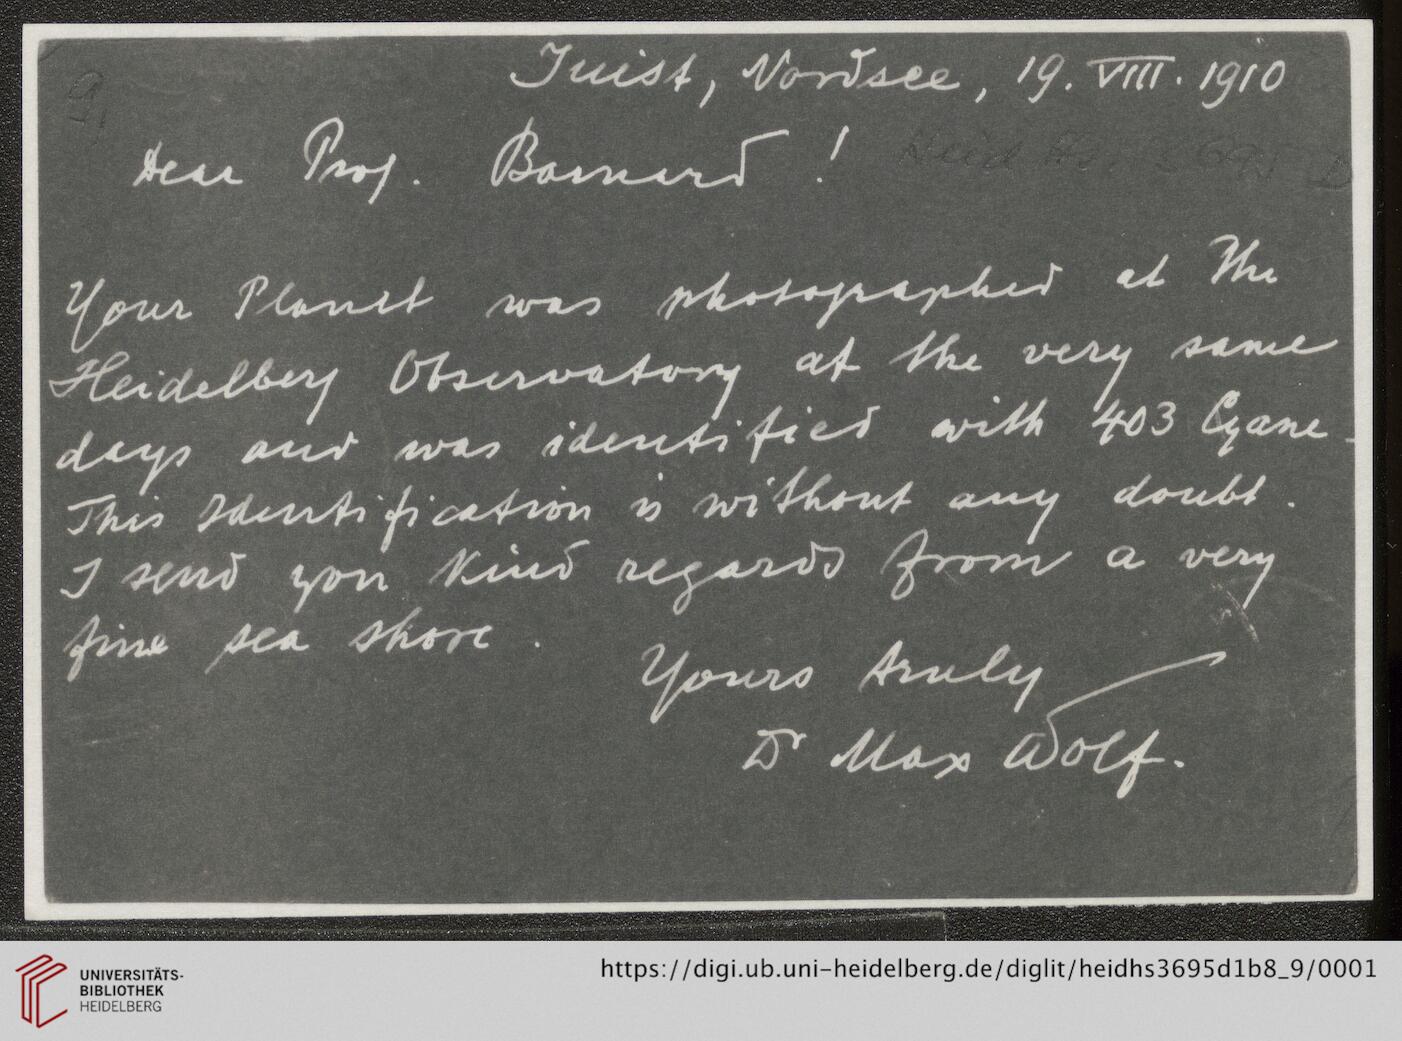 Juist, Nordsee, 19. VIII. 1910
Dear Prof. Barnard!
Your Planet was photographed at the
Heidelberg Observatory at the very same
days and was identified with 403 Cyane.
This Identification is without any doubt.
I send you kind regards from a very
fine sea shore.
Yours truly
Dr Max Wolf.
UNIVERSITÄTS-
BIBLIOTHEK
HEIDELBERG
https://digi.ub.uni-heidelberg.de/diglit/heidhs3695d1b8_9/0001